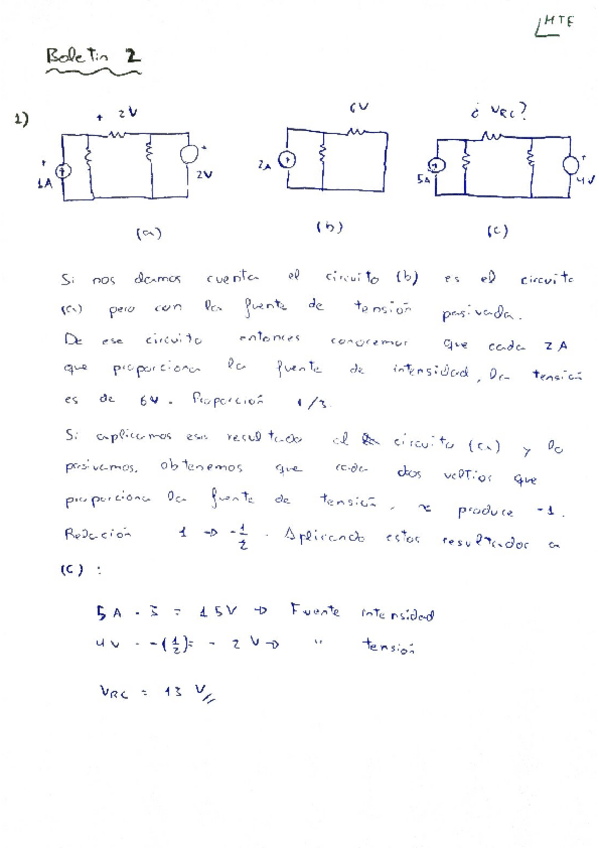 MTE
Boletin 2
1)
+ 2V
6V
¿ VRC?
+
1A
+
2V
2A
+
5A
+
4V
(a)
(b)
(c)
Si nos damos cuenta el circuito (b) es el circuito
(a) pero con la fuente de tensión pasivada.
De ese circuito entonces conocemos que cada 2A
que proporciona la fuente de intensidad, la tensión
es de 6V. Proporción 1/3.
Si aplicamos ese resultado al circuito (a) y lo
pasivamos, obtenemos que cada dos voltios que
proporciona la fuente de tensión, se produce -1.
Relación 1 → -1/2. Aplicando estos resultados a
(c) :
5A · 3 = 15V → Fuente intensidad
4V · -(1/2) = - 2V → " tensión
VRC = 13 V//